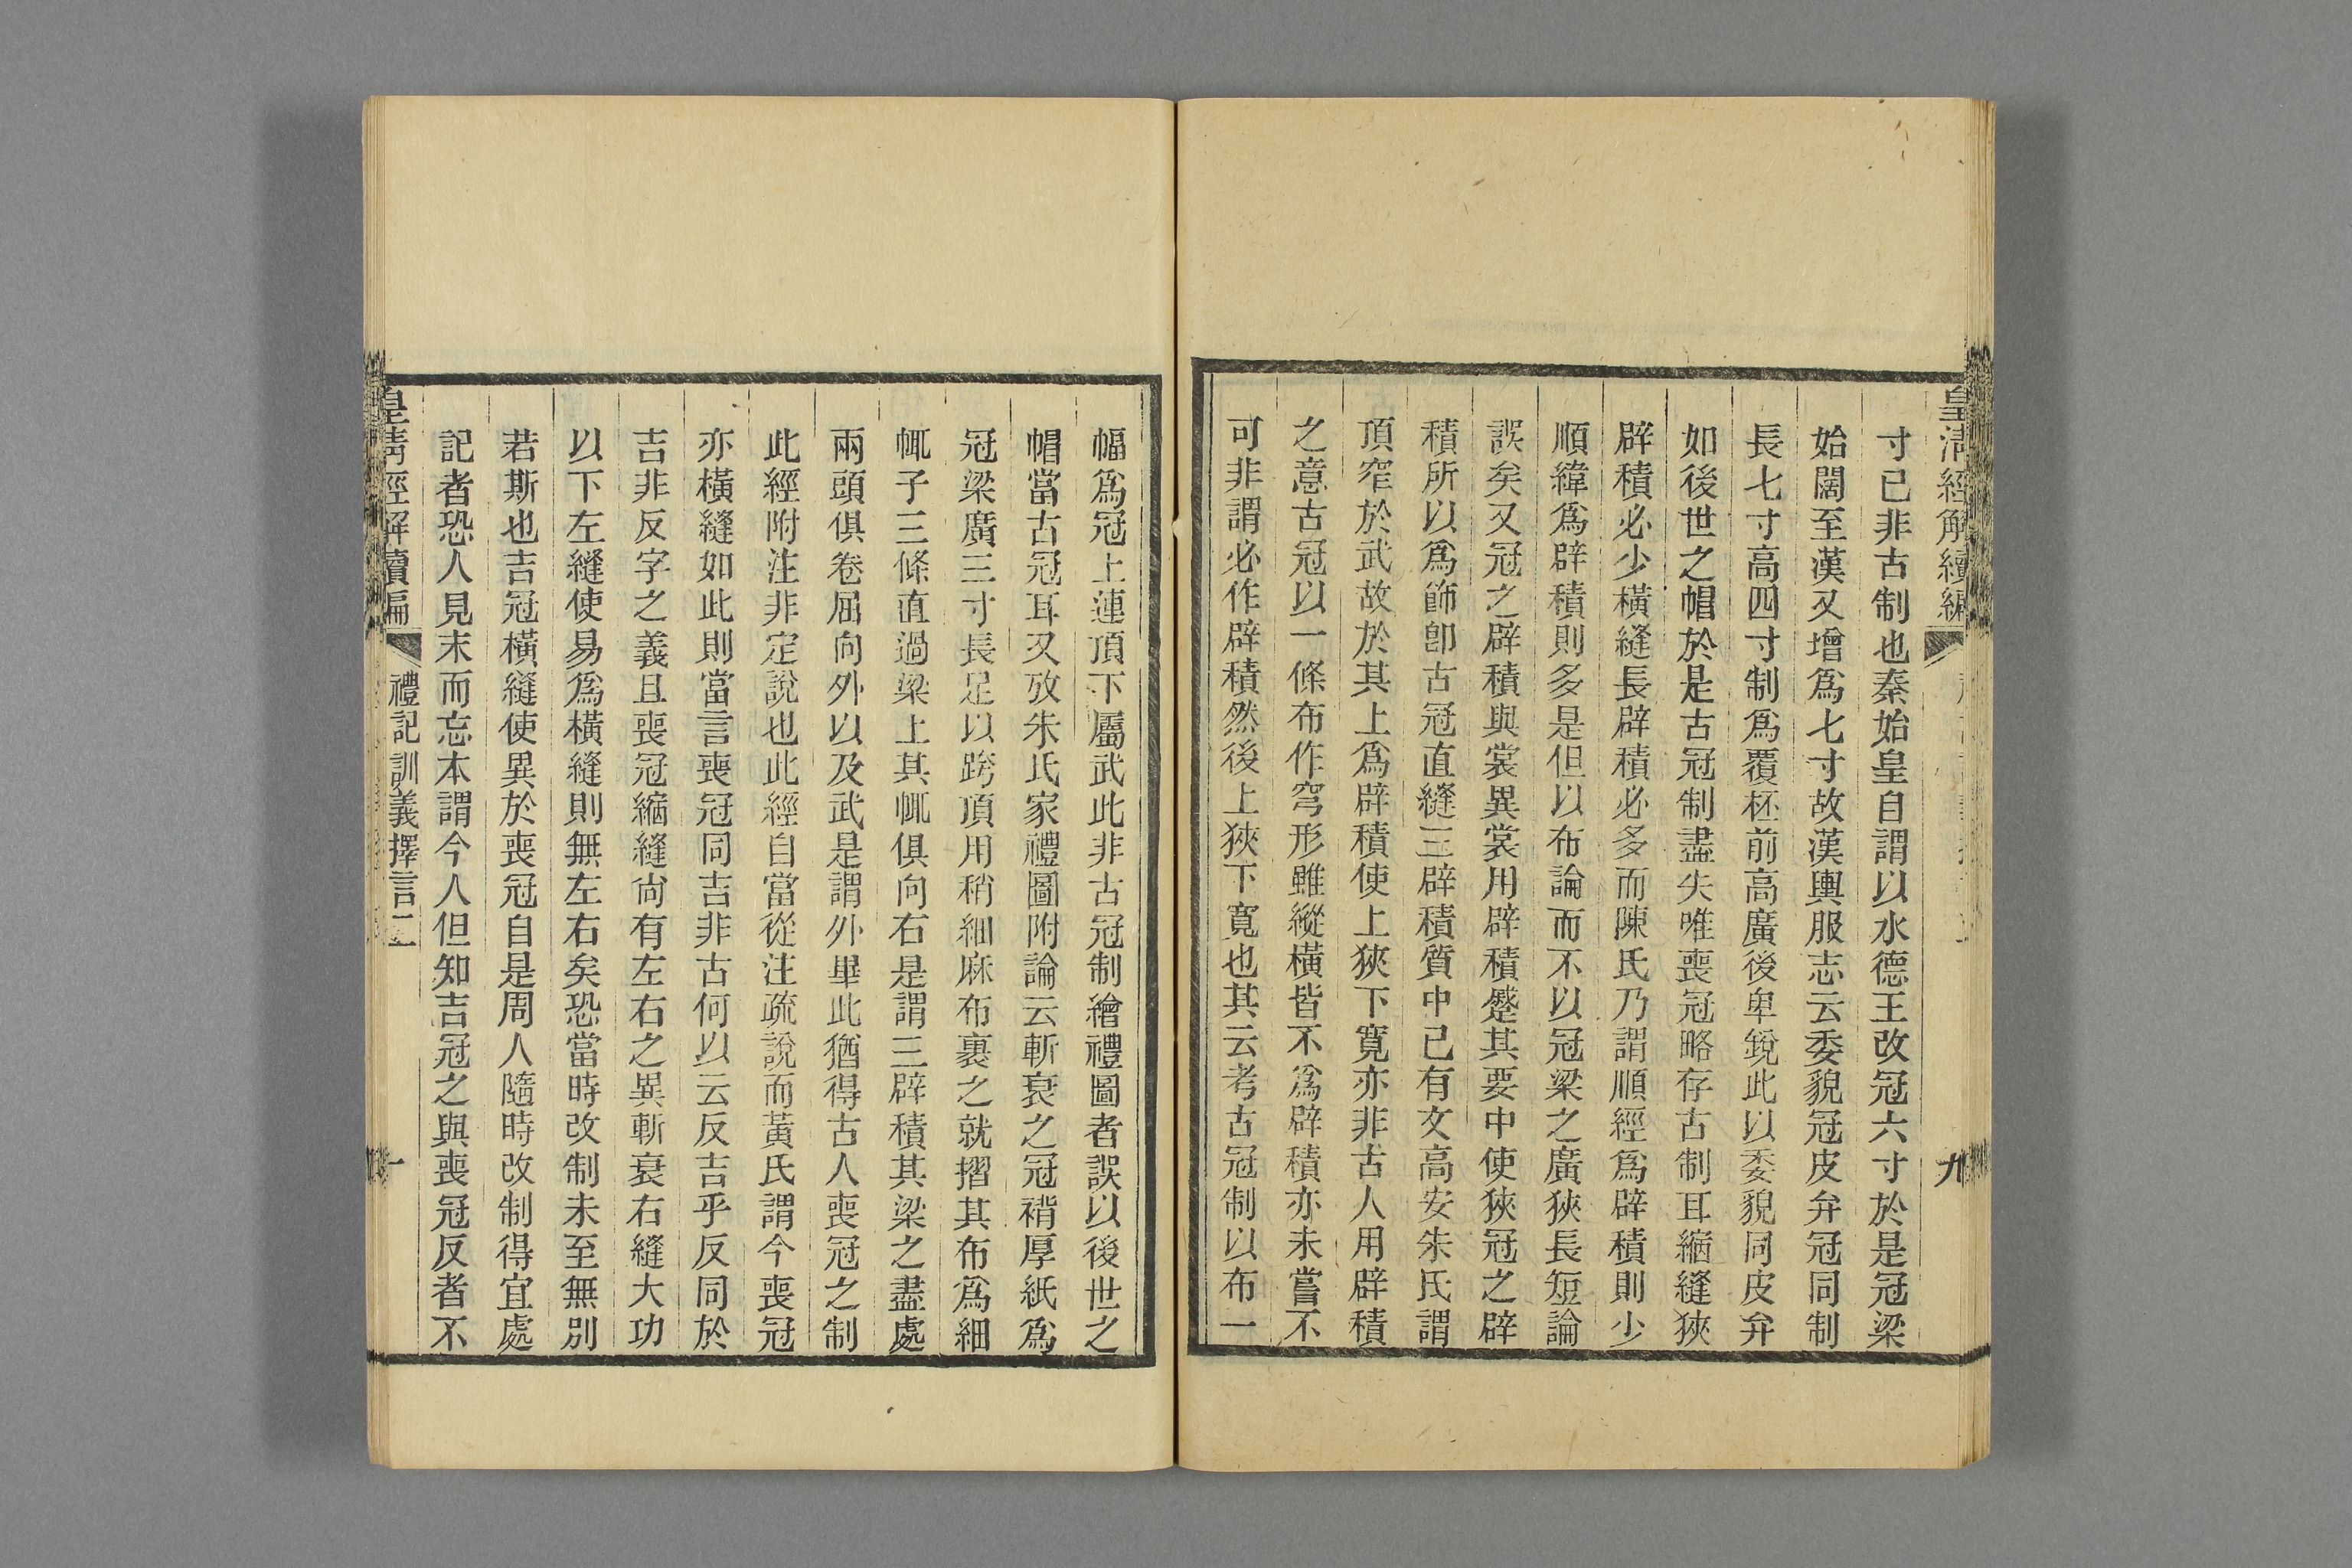 皇清經解續編
九
寸已非古制也秦始皇自謂以水德王改冠六寸於是冠梁
始闊至漢又增爲七寸故漢輿服志云委貌冠皮弁冠同制
長七寸高四寸制爲覆杯前高廣後卑銳此以委貌同皮弁
如後世之帽於是古冠制盡失唯喪冠略存古制耳縮縫狹
辟積必少橫縫長辟積必多而陳氏乃謂順經爲辟積則少
順緯爲辟積則多是但以布論而不以冠梁之廣狹長短論
誤矣又冠之辟積與裳異裳用辟積蹙其要中使狹冠之辟
積所以爲飾卽古冠直縫三辟積質中已有文高安朱氏謂
頂窄於武故於其上爲辟積使上狹下寬亦非古人用辟積
之意古冠以一條布作穹形雖縱橫皆不爲辟積亦未嘗不
可非謂必作辟積然後上狹下寬也其云考古冠制以布一
幅爲冠上連頂下屬武此非古冠制繪禮圖者誤以後世之
帽當古冠耳又攷朱氏家禮圖附論云斬衰之冠褙厚紙爲
冠梁廣三寸長足以跨頂用稍細麻布裹之就摺其布爲細
㡇子三條直過梁上其㡇俱向右是謂三辟積其梁之盡處
兩頭俱卷屈向外以及武是謂外畢此猶得古人喪冠之制
此經附注非定說也此經自當從注疏說而黃氏謂今喪冠
亦橫縫如此則當言喪冠同吉非古何以云反吉乎反同於
吉非反字之義且喪冠縮縫尙有左右之異斬衰右縫大功
以下左縫使易爲橫縫則無左右矣恐當時改制未至無別
若斯也吉冠橫縫使異於喪冠自是周人隨時改制得宜處
記者恐人見末而忘本謂今人但知吉冠之與喪冠反者不
皇清經解續編
禮記訓義擇言二